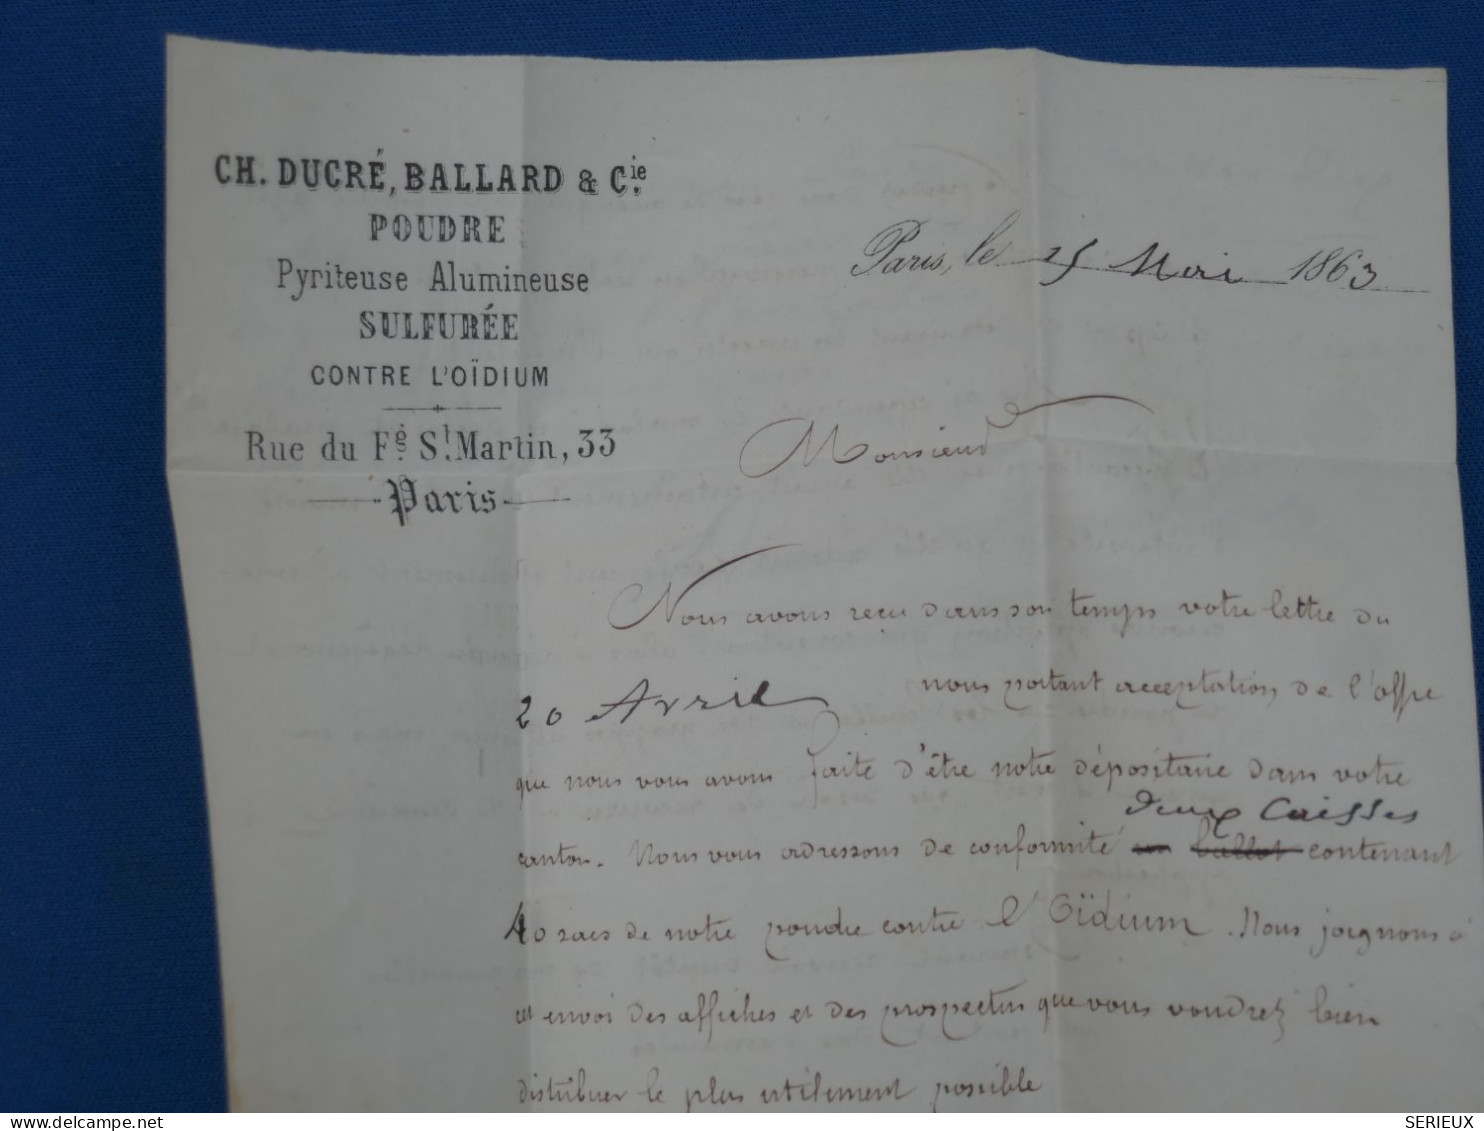 CH. DUCRÉ, BALLARD & Cie.
POUDRE
Pyriteuse Alumineuse
SULFURÉE
CONTRE L'OÏDIUM
Rue du Fg. St. Martin, 33
Paris
Paris, le 25 Mai 1863
Monsieur
Nous avons reçu dans son temps votre lettre du
20 Avril nous portant acceptation de l'offre
que nous vous avons faite d'être notre dépositaire dans votre
deux Caisses
canton. Nous vous adressons de conformité un ballot contenant
40 sacs de notre poudre contre l'Oïdium. Nous joignons à
cet envoi des affiches et des prospectus que vous voudrez bien
distribuer le plus utilement possible
SERIEUX